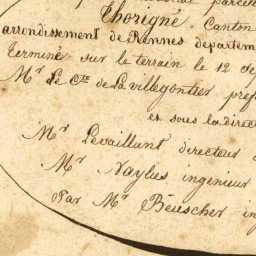 Thorigné, Canton
arrondissement de Rennes départem
Terminé sur le terrain le 12
Mr Le Cte de La villegontier préf
et sous la direct
Mr Levaillant directeur
Mr Naylies ingenieur
Par Mr Béuscher in